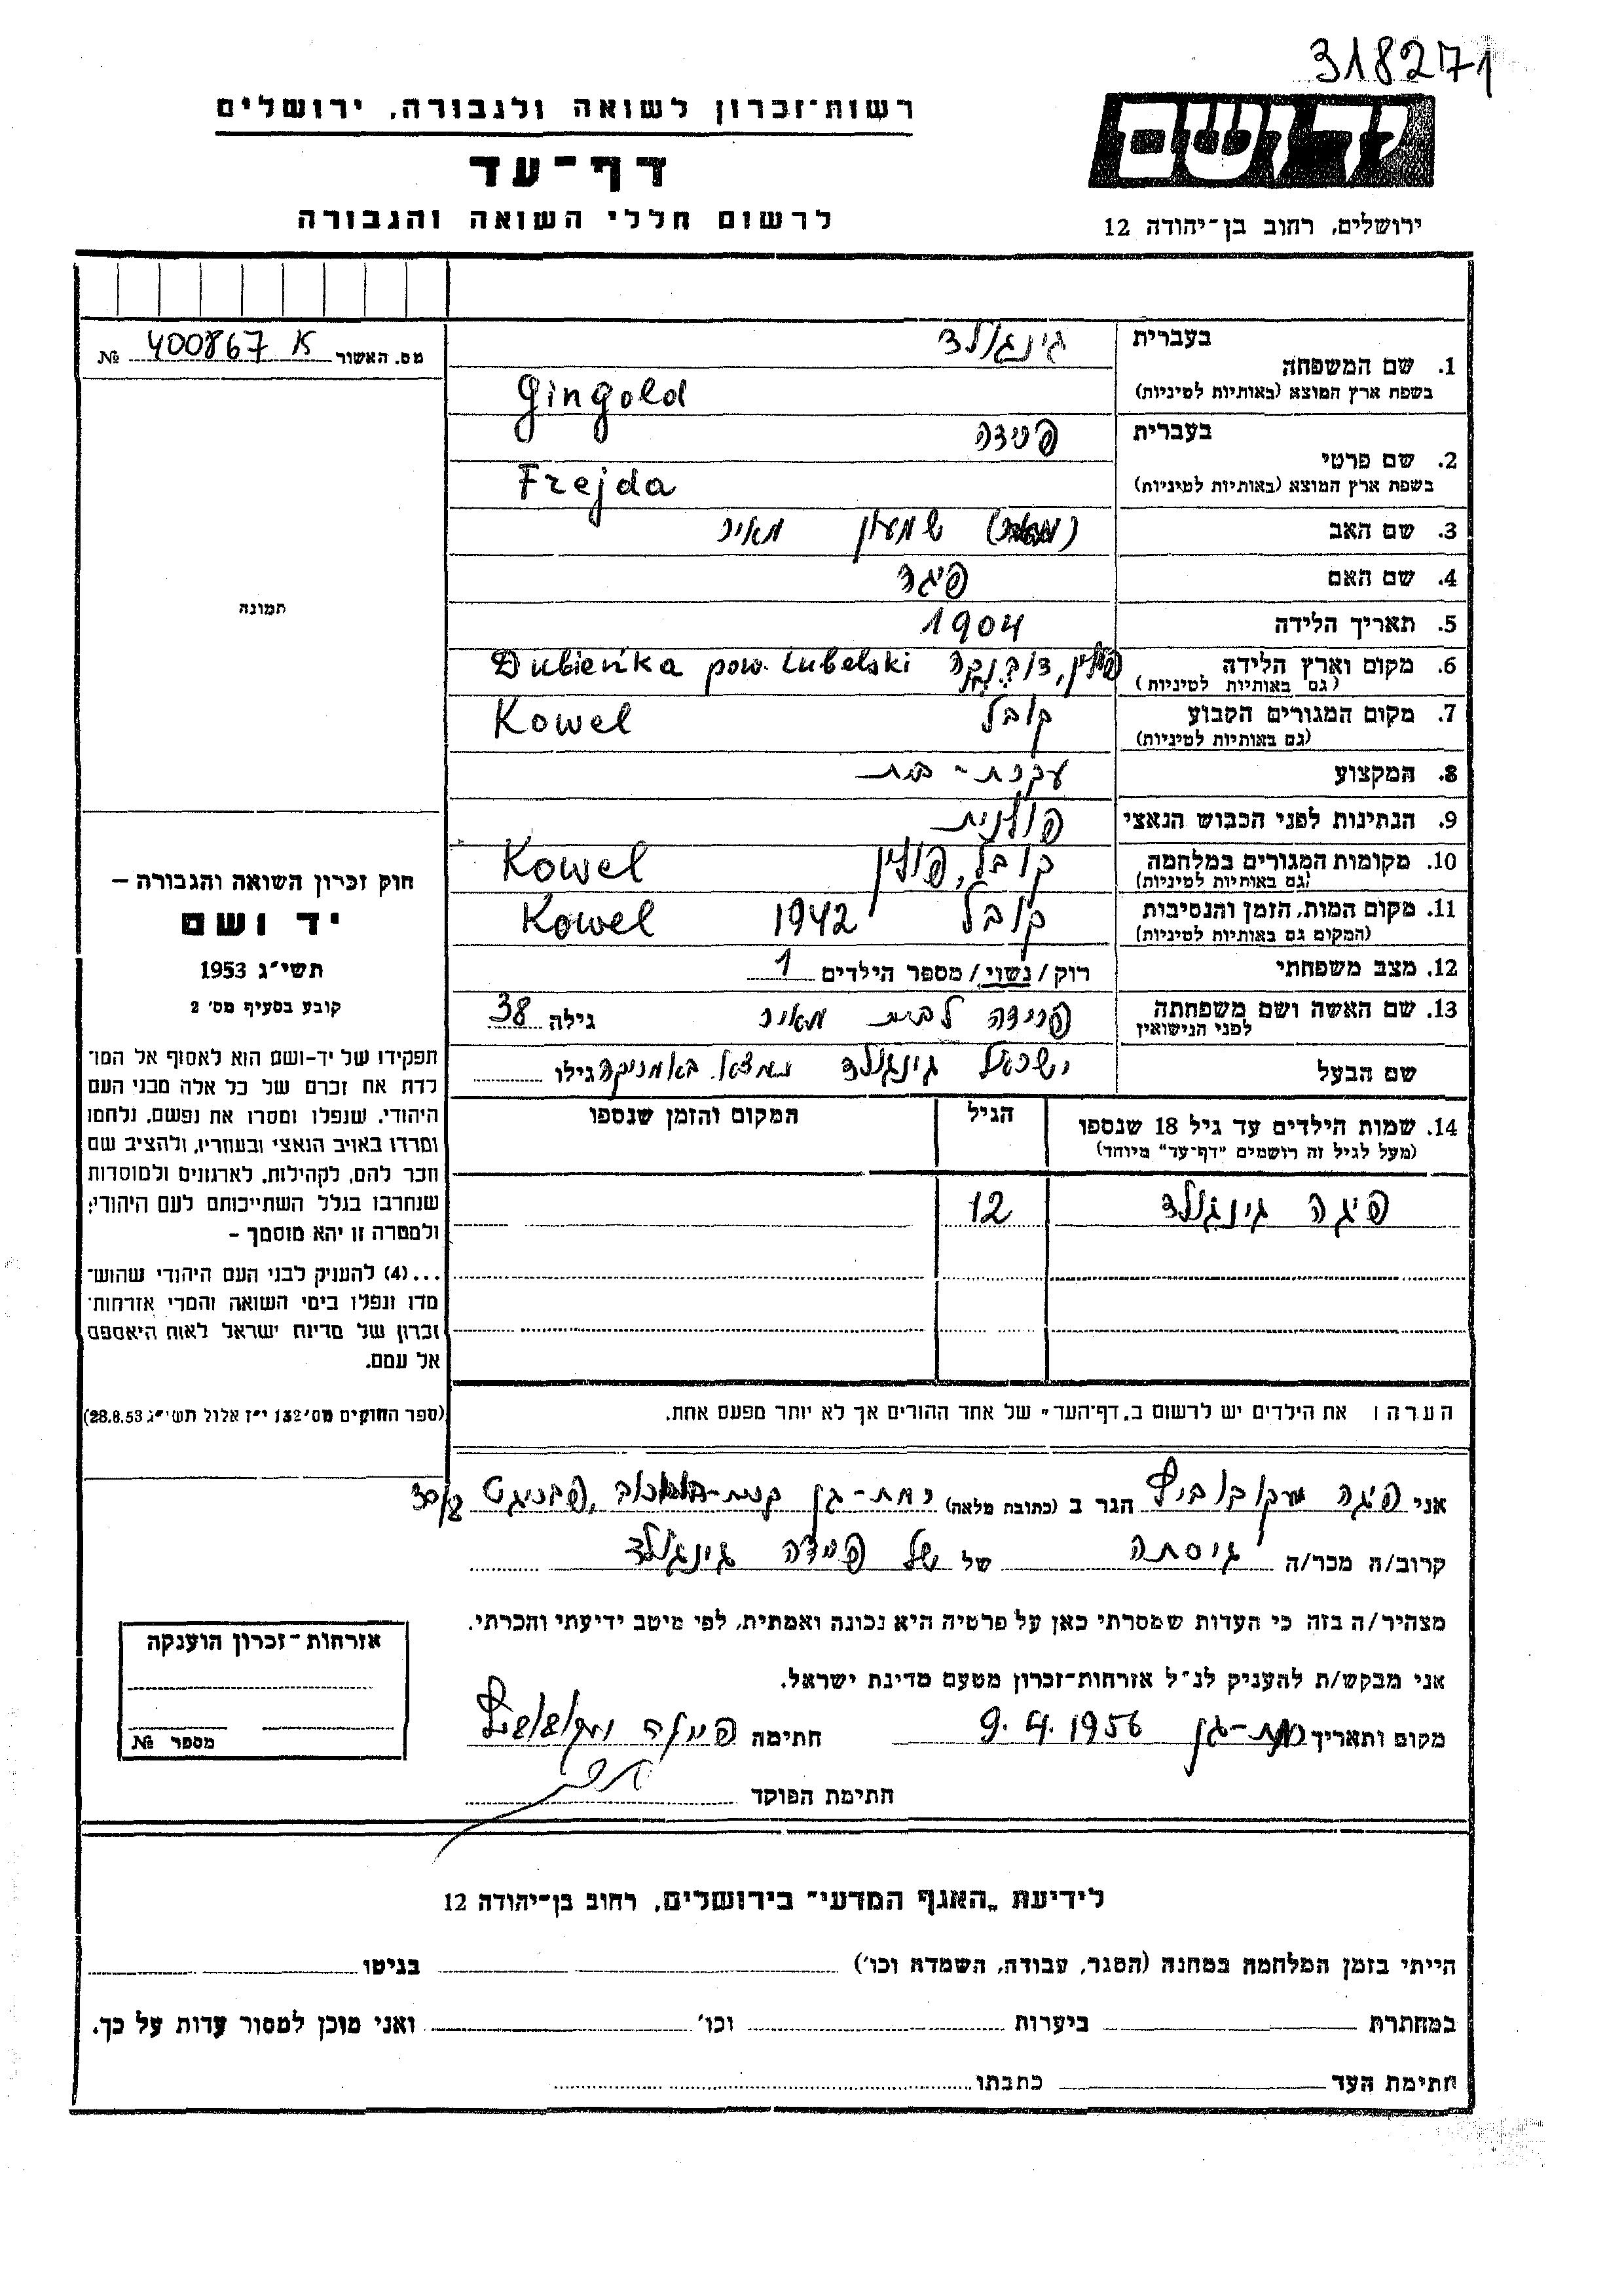 318271
רשות־זכרון לשואה ולגבורה, ירושלים
דף־עד
לרשום חללי השואה והגבורה
ידושם
ירושלים, רחוב בן־יהודה 12
מס. האשור 400867 א №
תמונה
חוק זכרון השואה והגבורה –
יד ושם
תשי"ג 1953
קובע בסעיף מס׳ 2
תפקידו של יד-ושם הוא לאסוף אל המו־
לדת את זכרם של כל אלה מבני העם
היהודי, שנפלו ומסרו את נפשם, נלחמו
ומרדו באויב הנאצי ובעוזריו, ולהציב שם
וזכר להם, לקהילות, לארגונים ולמוסדות
שנחרבו בגלל השתייכותם לעם היהודי;
ולמטרה זו יהא מוסמך –
...(4) להעניק לבני העם היהודי שהוש־
מדו ונפלו בימי השואה והמרי אזרחות־
זכרון של מדינת ישראל לאות היאספם
אל עמם.
(ספר החוקים מס׳ 132 י"ז אלול תשי"ג 28.8.53)
1. שם המשפחה בעברית גינגולד
בשפת ארץ המוצא (באותיות לטיניות) Gingold
2. שם פרטי בעברית פרידה
בשפת ארץ המוצא (באותיות לטיניות) Frejda
3. שם האב שמעון מאיר
4. שם האם פיגה
5. תאריך הלידה 1904
6. מקום וארץ הלידה פולין, Dubieńka pow. Lubelski
(גם באותיות לטיניות)
7. מקום המגורים הקבוע קובל Kowel
(גם באותיות לטיניות)
8. המקצוע עקרת-בית
9. הנתינות לפני הכבוש הנאצי פולנית
10. מקומות המגורים במלחמה קובל, פולין Kowel
(גם באותיות לטיניות)
11. מקום המות, הזמן והנסיבות קובל 1942 Kowel
(המקום גם באותיות לטיניות)
12. מצב משפחתי רוק/נשוי/ מספר הילדים 1
13. שם האשה ושם משפחתה פרידה לבית מאיר גילה 38
לפני הנישואין
שם הבעל ישראל גינגולד נמצא באמריקה גילו
14. שמות הילדים עד גיל 18 שנספו הגיל המקום והזמן שנספו
(מעל לגיל זה רושמים "דף־עד" מיוחד)
פיגה גינגולד 12
הערה: את הילדים יש לרשום ב„דף־העד" של אחד ההורים אך לא יותר מפעם אחת.
אני פיגה הגר ב (כתובת מלאה) רמת-גן
קרוב/ה מכר/ה גיסתה של פרידה גינגולד
מצהיר/ה בזה כי העדות שמסרתי כאן על פרטיה היא נכונה ואמתית, לפי מיטב ידיעתי והכרתי.
אני מבקש/ת להעניק לנ"ל אזרחות־זכרון מטעם מדינת ישראל.
מקום ותאריך רמת-גן 9.4.1956 חתימה
חתימת הפוקד
אזרחות־זכרון הוענקה
מספר №
לידיעת „האגף המדעי" בירושלים, רחוב בן־יהודה 12
הייתי בזמן המלחמה במחנה (הסגר, עבודה, השמדה וכו׳) בגיטו
במחתרת ביערות וכו׳ ואני מוכן למסור עדות על כך.
חתימת העד כתבתו